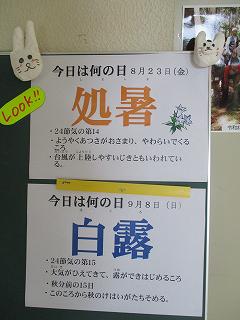 LOOK!!
今日は何の日 8月23日(金)
しょしょ
処暑
・24節気の第14
・ようやくあつさがおさまり、やわらいでくる
ころ。
・台風が上陸しやすいじきともいわれてい
る。
今日は何の日 9月8日(日)
はくろ
白露
・24節気の第15
・大気がひえてきて、露ができはじめるころ
・秋分前の15日
・このころから秋のけはいがたちそめる。